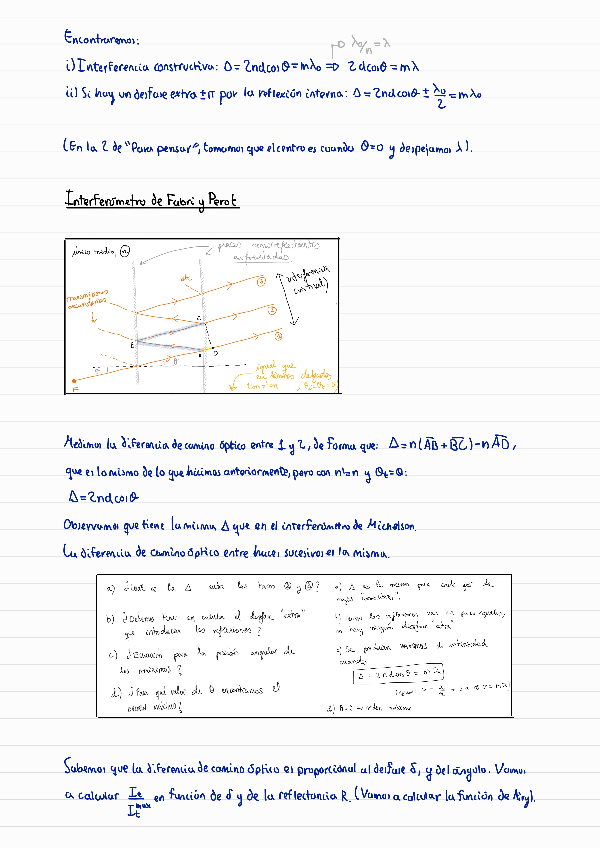 Encontraremos:
→ λ₀/n = λ
i) Interferencia constructiva: Δ = 2ndcosθ = mλ₀ ⇒ 2dcosθ = mλ
ii) Si hay un desfase extra ±π por la reflexión interna: Δ = 2ndcosθ ± λ₀/2 = mλ₀
(En la 2 de "Para pensar", tomamos que el centro es cuando θ=0 y despejamos λ).
Interferómetro de Fabri y Perot
único medio, n
placas semirreflectantes
transmisiones
secundarias
interferencia
(virtual)
igual que
Medimos la diferencia de camino óptico entre 1 y 2, de forma que: Δ = n(AB + BC) - nAD,
que es lo mismo de lo que hicimos anteriormente, pero con n'=n y θt=θ:
Δ = 2ndcosθ
Observamos que tiene la misma Δ que en el interferómetro de Michelson.
La diferencia de camino óptico entre haces sucesivos es la misma.
a) ¿Cuál es la Δ entre los rayos ② y ③?
b) ¿Debemos tener en cuenta el desfase "extra"
que introducen las reflexiones?
c) ¿Ecuación para la posición angular de
los máximos?
d) ¿Para qué valor de θ encontramos el
a) Δ es la misma para cada par de
c) Se producen máximos de intensidad
cuando
Δ = 2ndcosθ = mλ
Sabemos que la diferencia de camino óptico es proporcional al desfase δ, y del ángulo. Vamos
a calcular It/It^max en función de δ y de la reflectancia R. (Vamos a calcular la función de Airy).